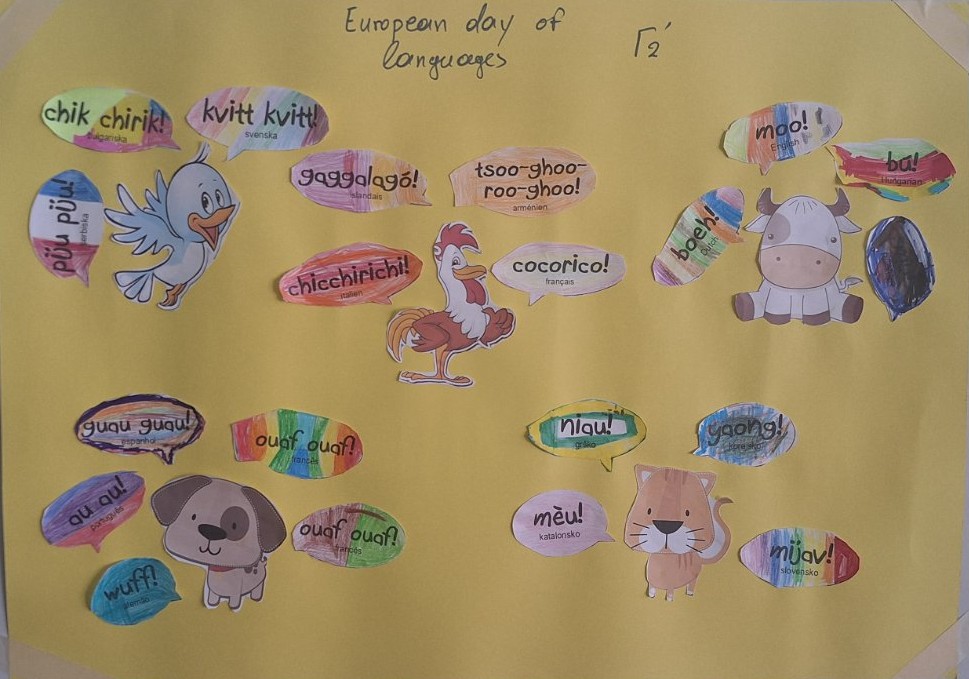 European day of
languages
Γ2'
chik chirik!
bulgariska
kvitt kvitt!
svenska
püu püu!
gaggalagó!
islandais
tsoo-ghoo-
roo-ghoo!
arménien
chicchirichi!
italien
cocorico!
français
moo!
English
bú!
Hungarian
boeh!
Dutch
guau guau!
espanhol
ouaf ouaf!
francês
au au!
português
ouaf ouaf!
francês
wuff!
alemão
niau!
grško
yaong!
mèu!
katalonsko
mijav!
slovensko